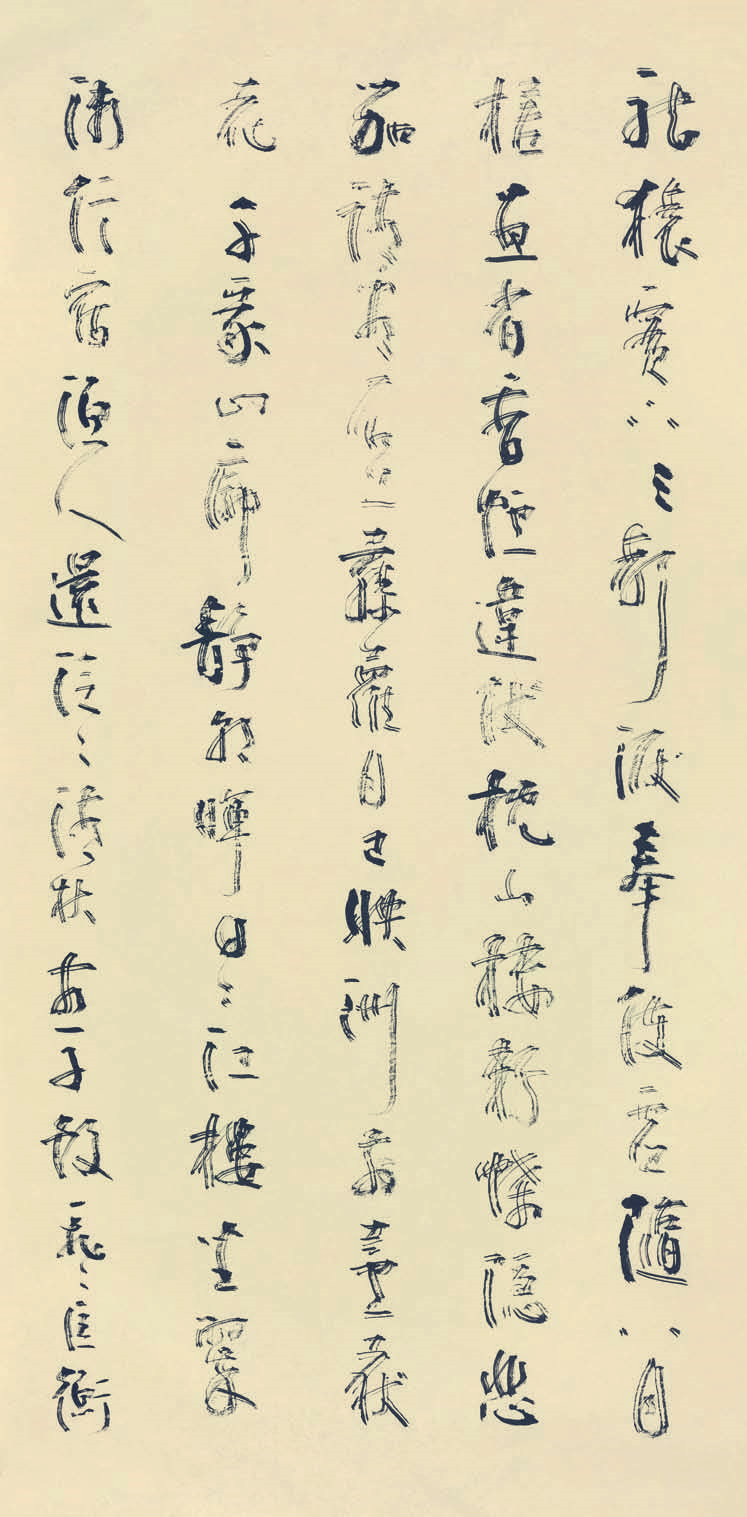 聽猿實下三聲淚奉使虛隨八月
槎畫省香爐違伏枕山樓粉堞隱悲
笳請看石上藤蘿月已映洲前蘆荻
花千家山郭靜朝暉日〻江樓坐翠
微信宿漁人還泛〻清秋燕子故飛〻匡衡